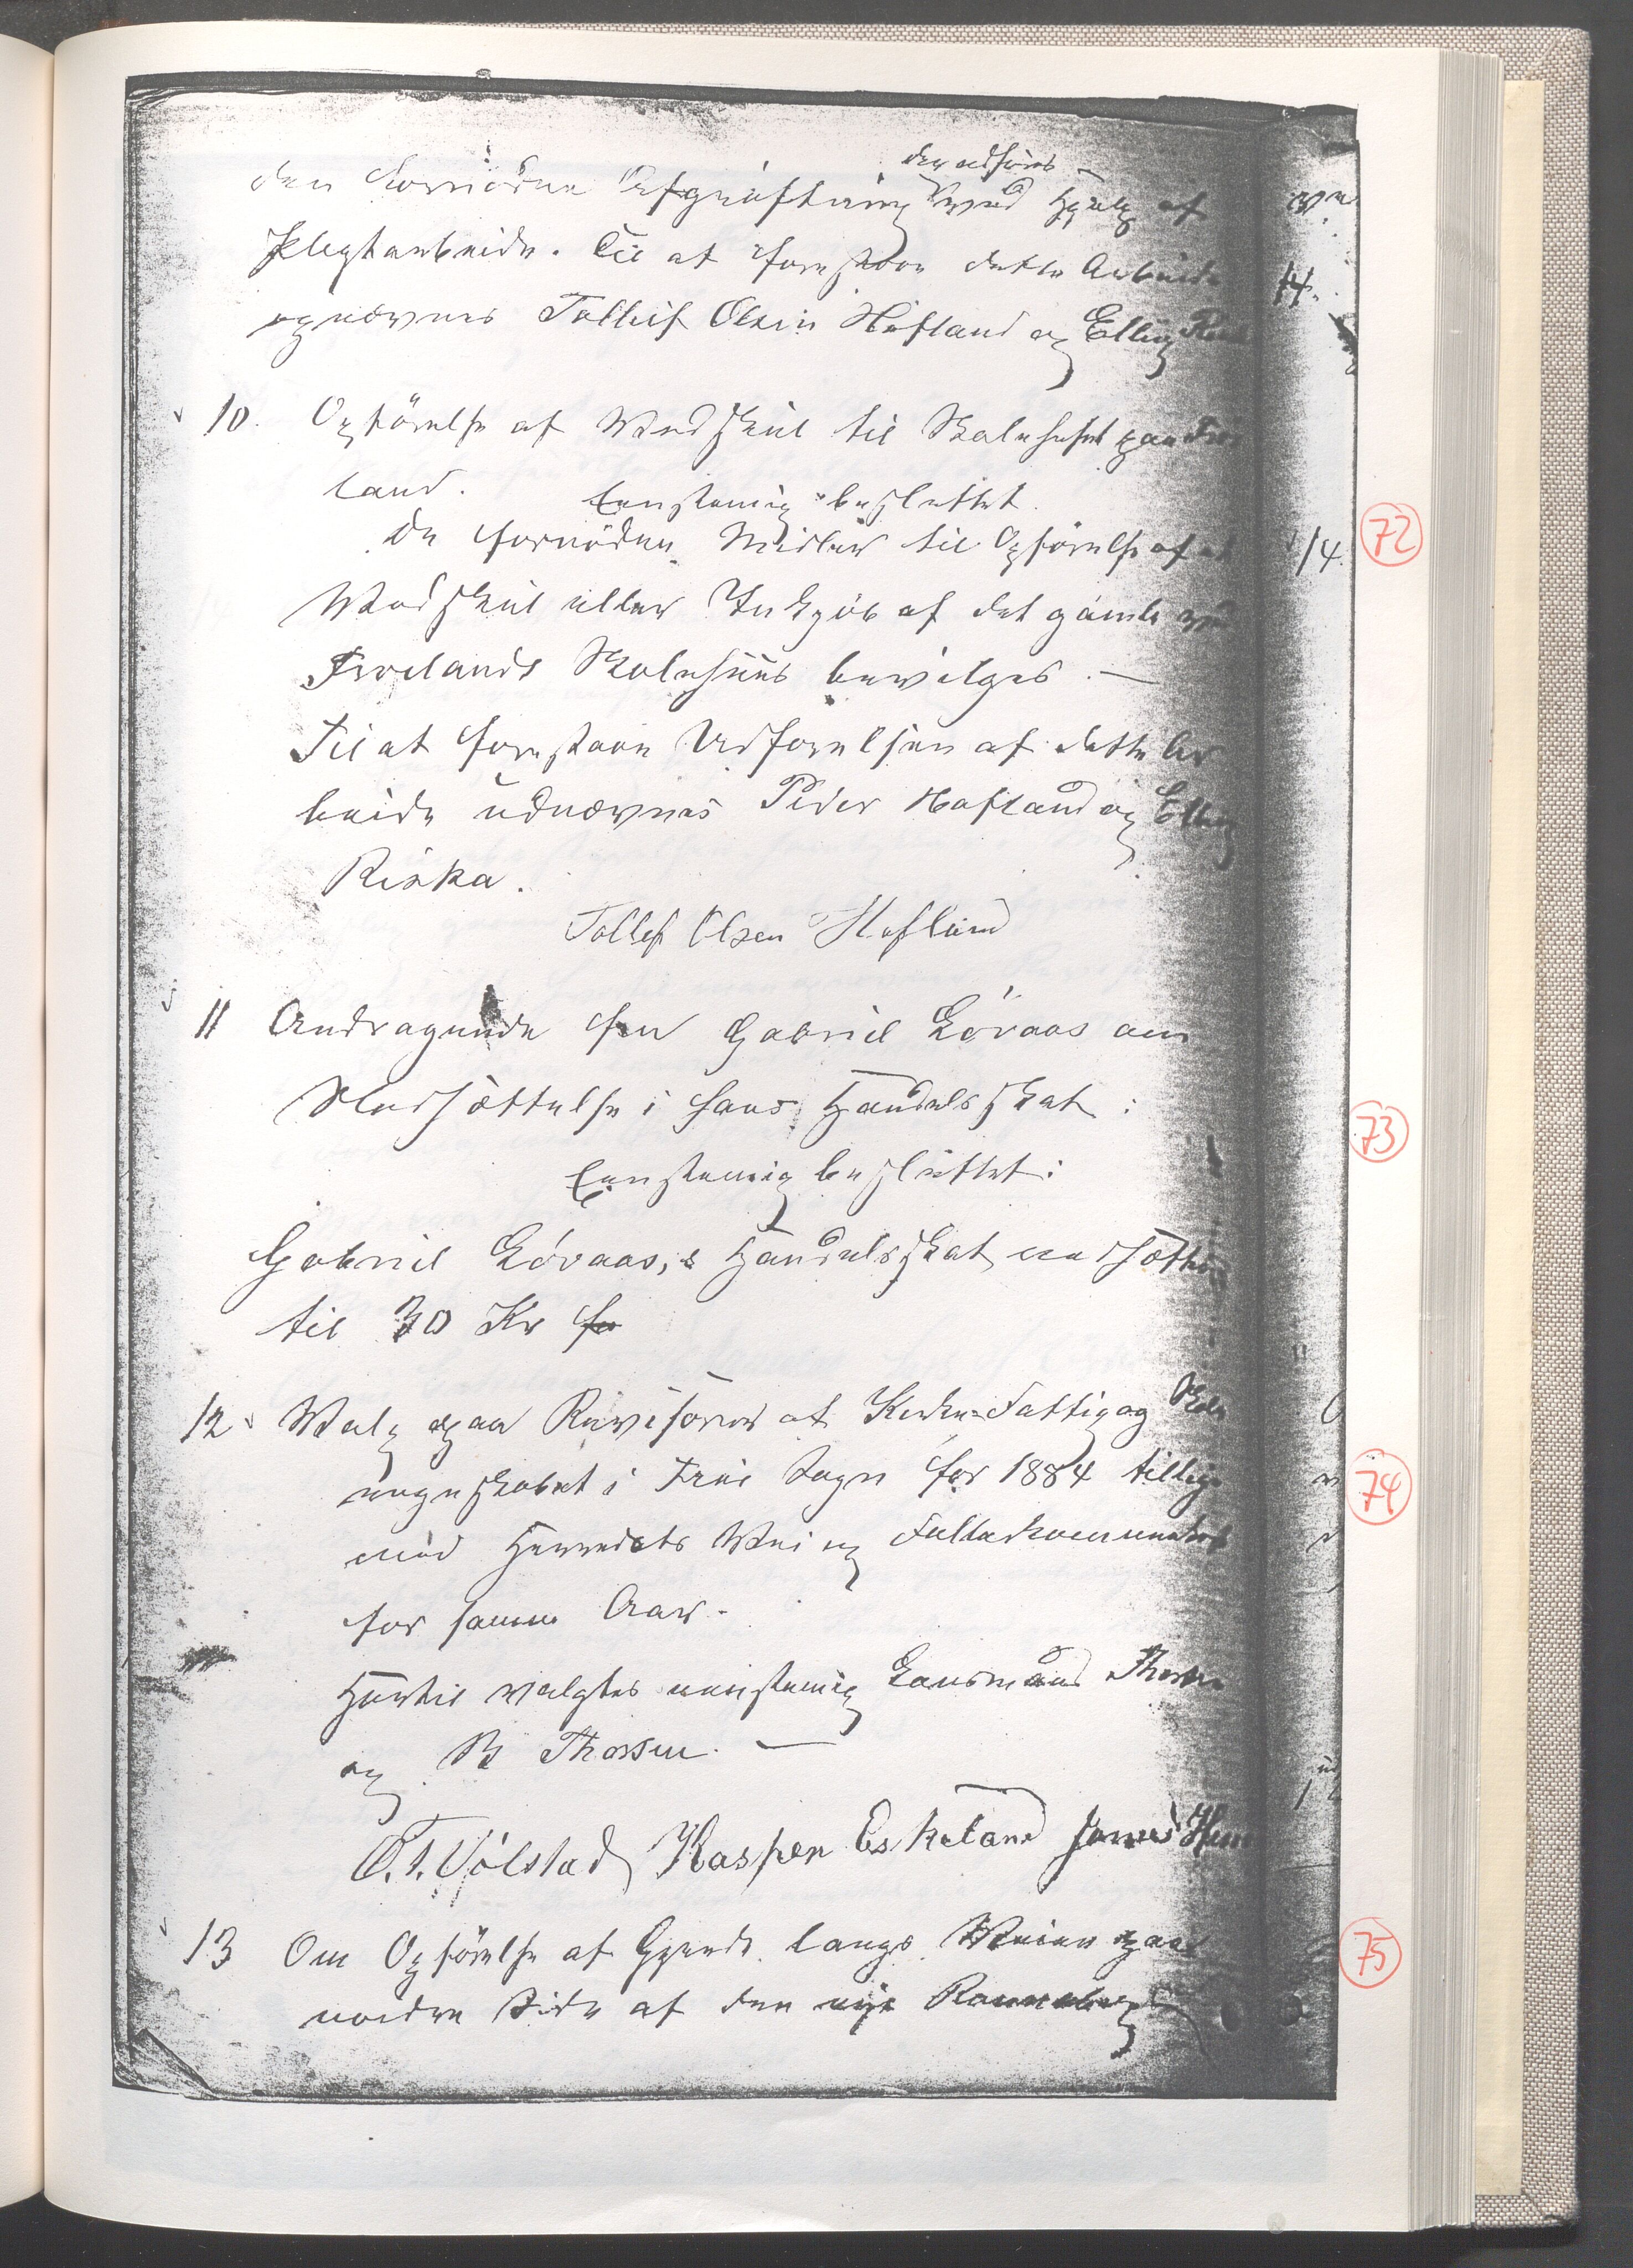 der udføres
den fornødne Afgrøftning ved Hjælp af
Pligtarbeide. Til at forestaae dette Arbeide
opnævnes Tollief Olsen Hafland og Elling
10. Opførelse af Vedskuul til Skolehuset paa Frø
land. Eenstemig besluttet.
De fornødne Midler til Opførelse af et
Vedskuul eller Indkjøb af det gamle
Frøilands Skolehuus bevilges. —
Til at forestaae Udførelsen af dette Ar
beide udnævnes Peder Hafland og Elling
Riska.
Tollef Olsen Hafland
11 Andragende fra Gabriel Lövaas om
Nedsættelse i hans Handelsskat:
Eenstemig besluttet:
Gabriel Lövaas,s Handelsskat nedsættes
til 30 Kr
12 Valg paa Revisorer af Kirke-Fattig og Skole
regnskabet i Sogn for 1884 tillige
med Herredets Vei og
for samme Aar.
Hertil valgtes eenstemig Lensmand
og B Thorsen. —
O. T. Vølstad Kasper Eskeland
13 Om Opførelse af Gjerde langs Veien paa
nordre Side af den nye
14.
1/4.
72
73
74
75